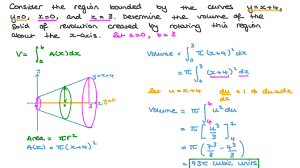 Consider the region bounded by the curves y=x+4,
y=0, x=0, and x=3. Determine the volume of the
solid of revolution created by rotating this region
about the x-axis. Let a=0, b=3
V= ∫_a^b A(x)dx
y=x+4
y=0
Area = πr²
A(x) = π(x+4)²
Volume = ∫_0^3 π(x+4)² dx
= π ∫_0^3 (x+4)² dx
Let u=x+4 du/dx =1 ⇒ du=dx
Volume = π ∫_4^7 u² du
= π [u³/3]_4^7
= π (7³/3 - 4³/3)
= 93π cubic units